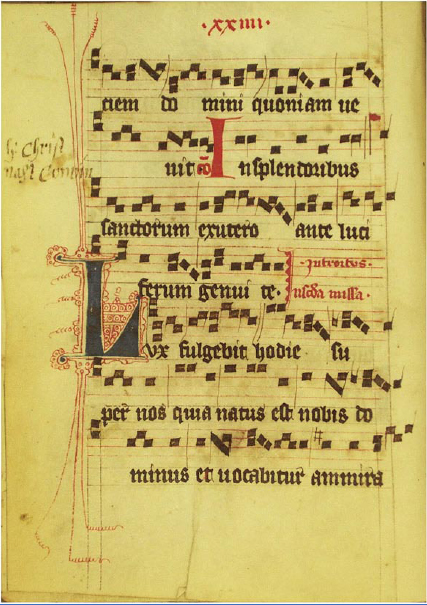 ·xxiiii·
ciem do mini quoniam ue
nit cō In splendoribus
sanctorum exutero ante luci
ferum genui te· Introitus·
Lux fulgebit hodie su
per nos quia natus est nobis do
minus et uocabitur ammira